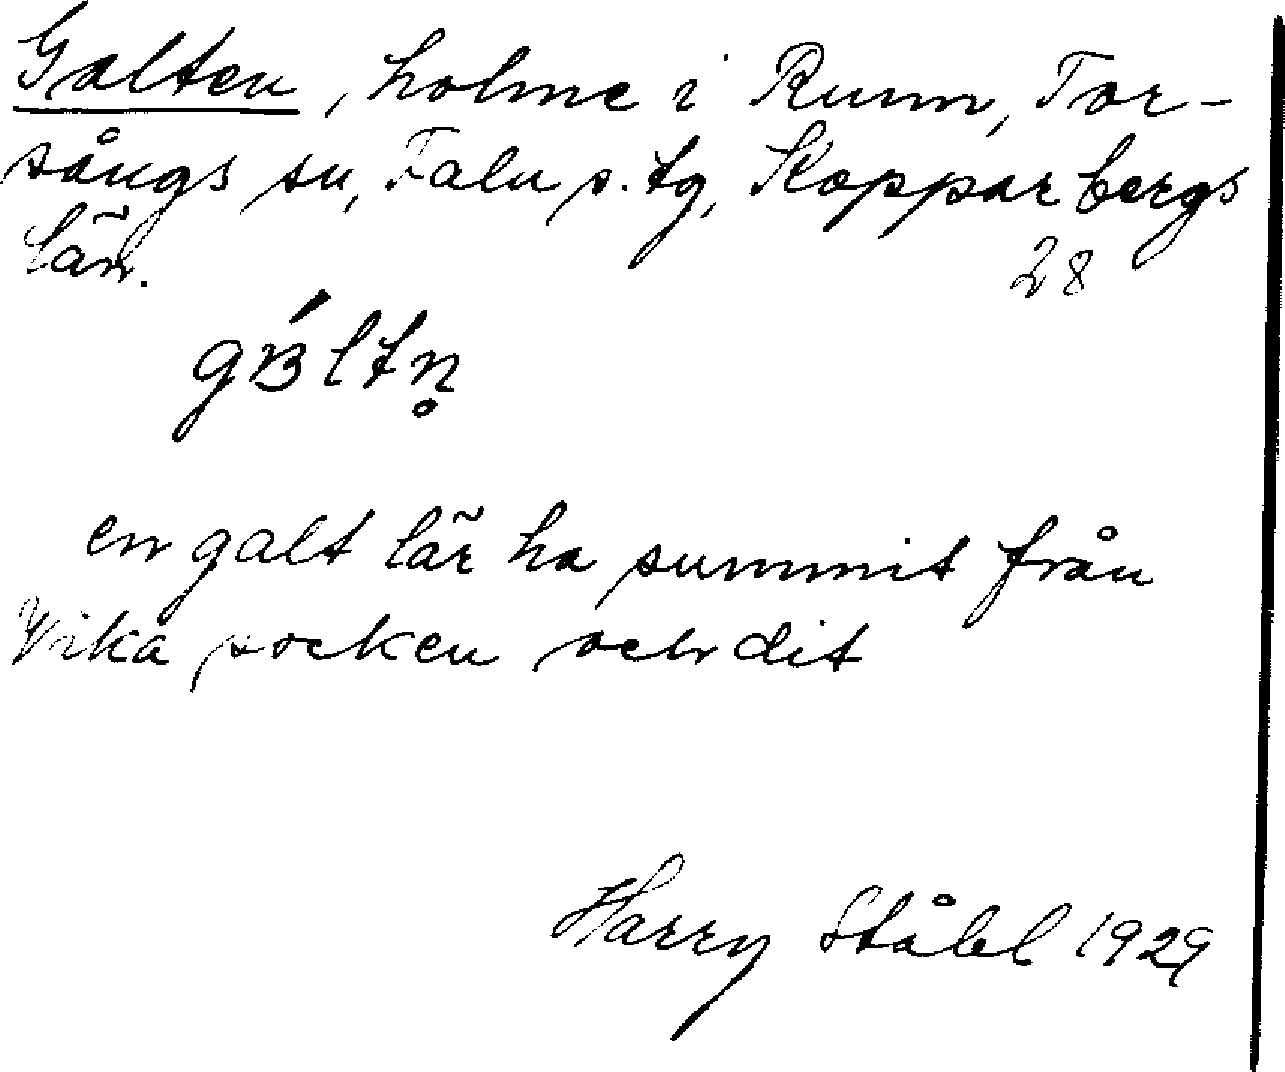 Galten, holme i Runn, Tor-
sångs sn, Falu s. tg, Kopparbergs
län.
28
gɞ́ltn̥
en galt lär ha summit från
Vika socken och dit
Harry Ståhl 1929